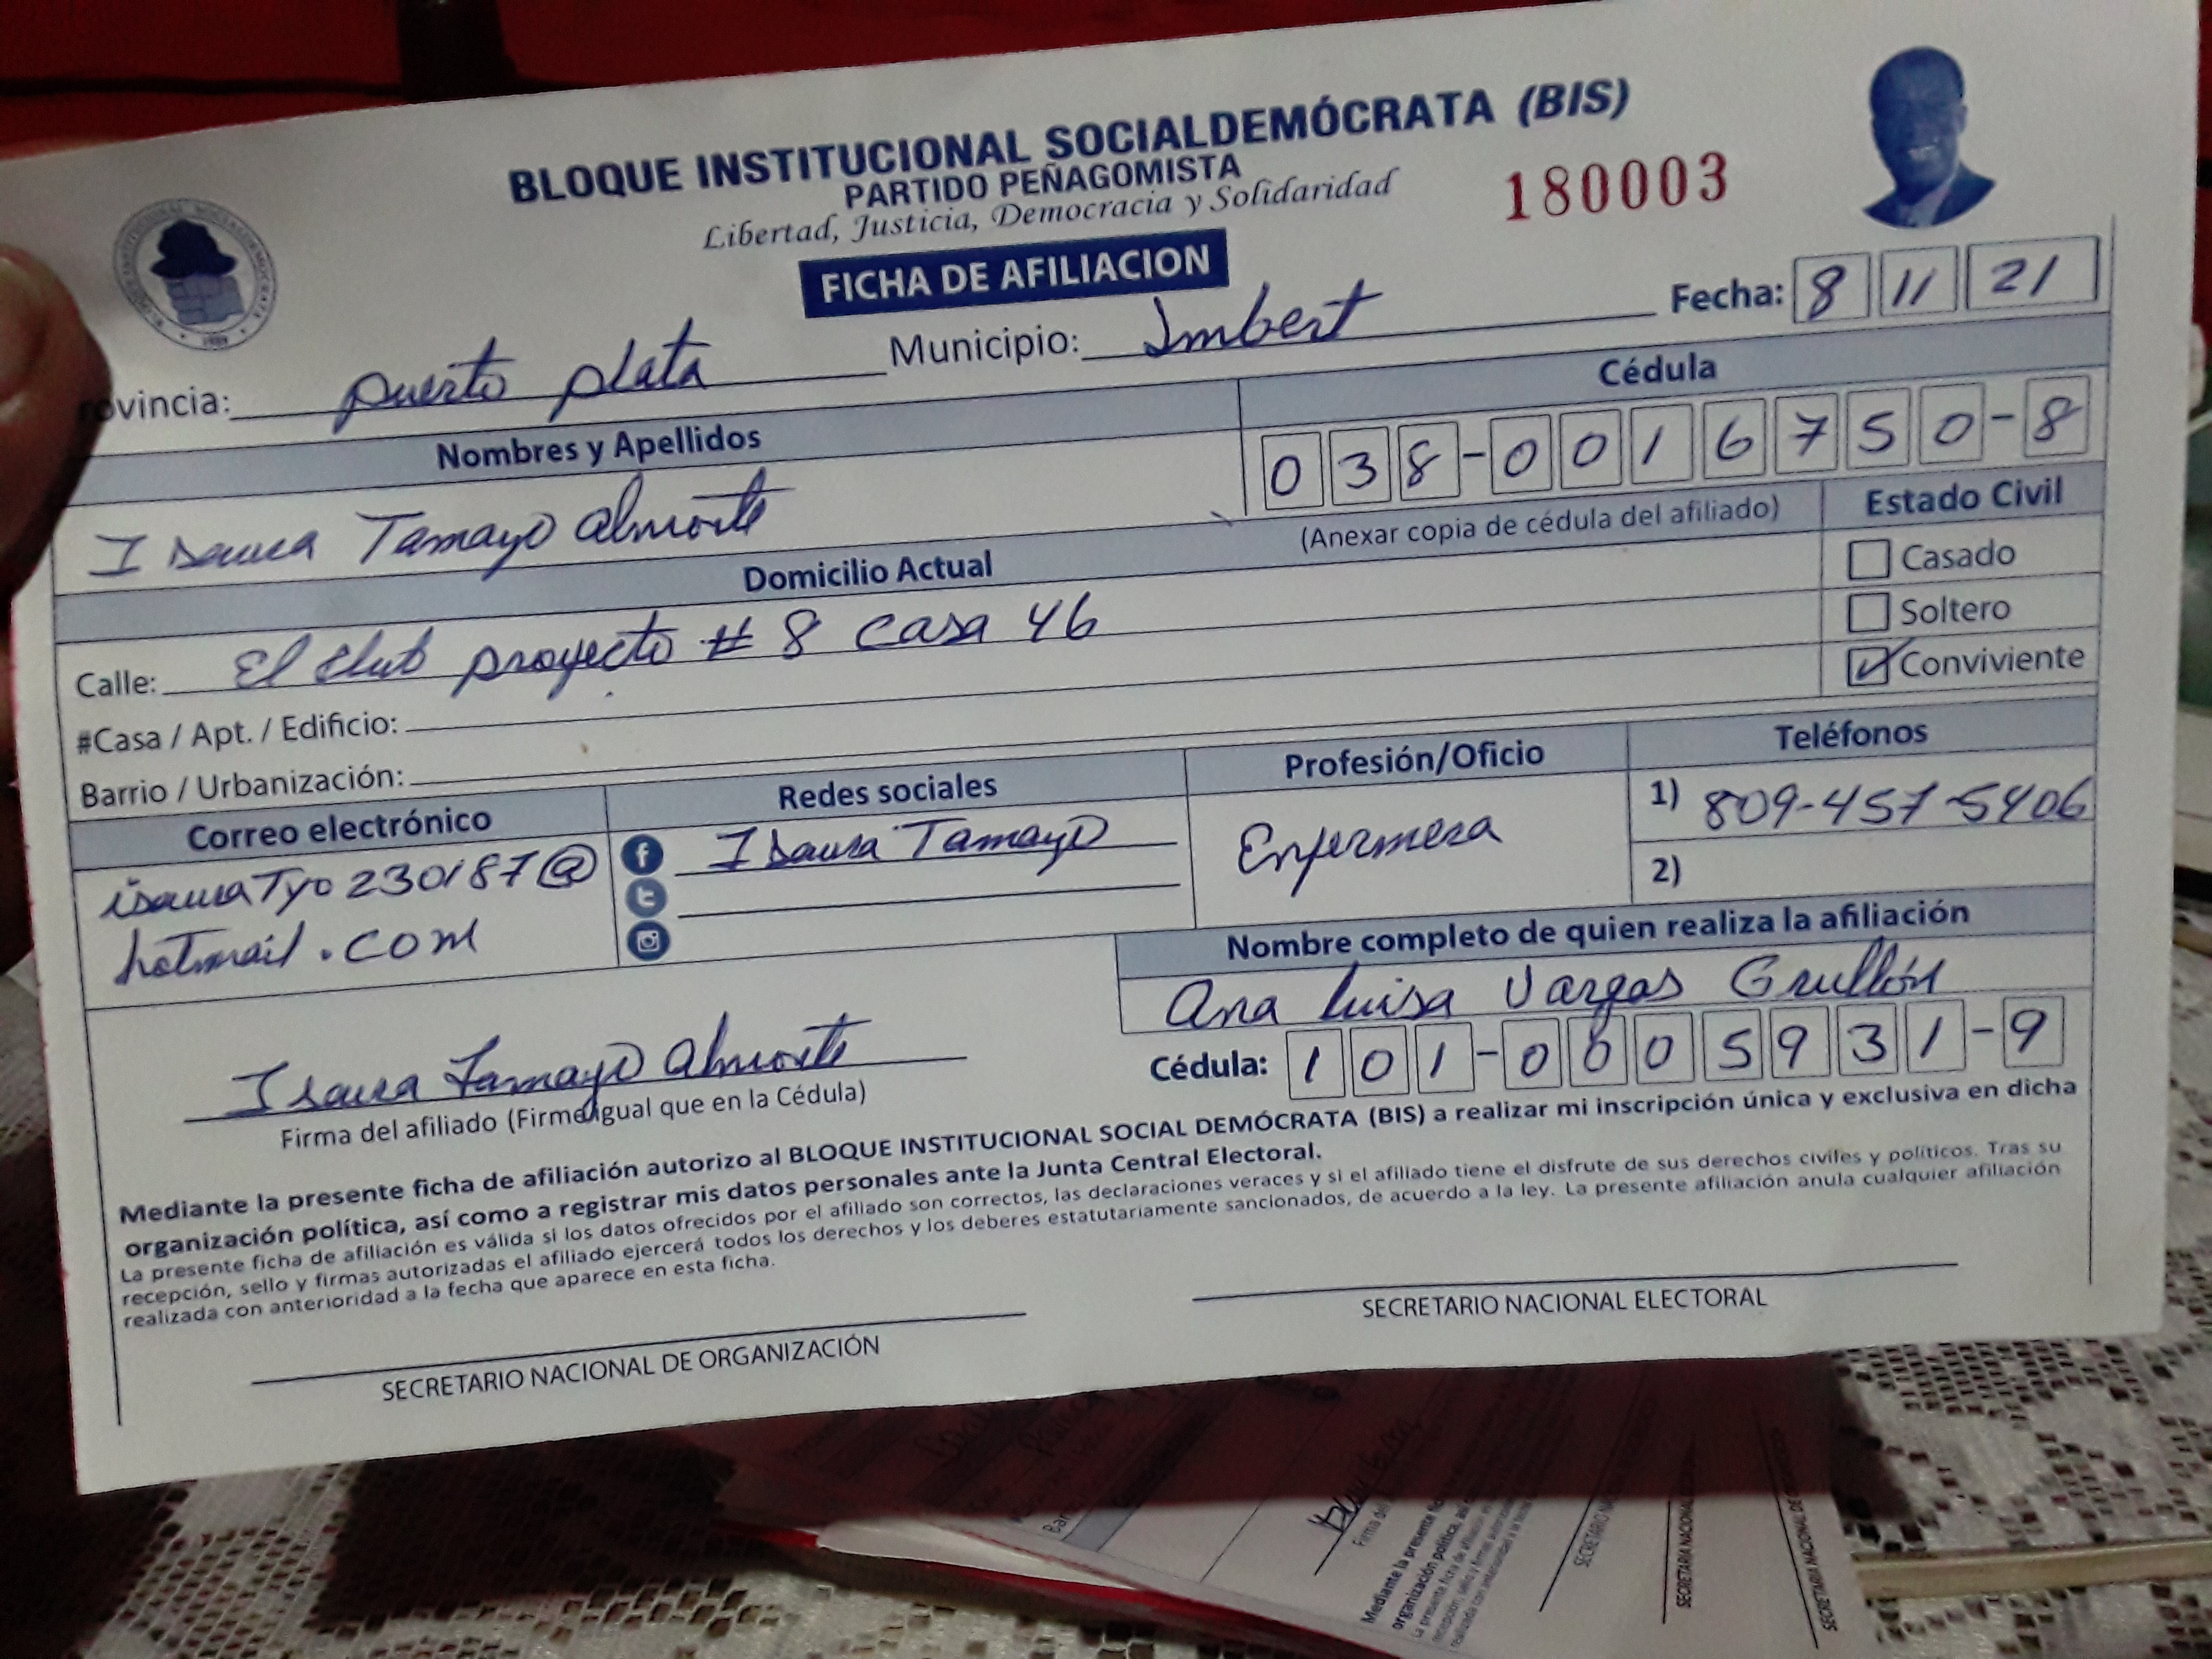 BLOQUE INSTITUCIONAL SOCIALDEMÓCRATA (BIS)
PARTIDO PEÑAGOMISTA
Libertad, Justicia, Democracia y Solidaridad
180003
FICHA DE AFILIACION
Fecha: 8 11 21
rovincia: puerto plata Municipio: Imbert
Nombres y Apellidos
Cédula
Isaura Tamayo Almonte
038-0016750-8
(Anexar copia de cédula del afiliado)
Domicilio Actual
Estado Civil
Casado
Soltero
Conviviente
Calle: El Club proyecto # 8 casa 46
#Casa / Apt. / Edificio:
Barrio / Urbanización:
Correo electrónico
Redes sociales
Profesión/Oficio
Teléfonos
isauraTyo230187@
hotmail.com
Isaura Tamayo
Enfermera
1) 809-457-5406
2)
Nombre completo de quien realiza la afiliación
Ana Luisa Vargas Grullón
Cédula: 101-0005931-9
Isaura Tamayo Almonte
Firma del afiliado (Firme igual que en la Cédula)
Mediante la presente ficha de afiliación autorizo al BLOQUE INSTITUCIONAL SOCIAL DEMÓCRATA (BIS) a realizar mi inscripción única y exclusiva en dicha
organización política, así como a registrar mis datos personales ante la Junta Central Electoral.
La presente ficha de afiliación es válida si los datos ofrecidos por el afiliado son correctos, las declaraciones veraces y si el afiliado tiene el disfrute de sus derechos civiles y políticos. Tras su
recepción, sello y firmas autorizadas el afiliado ejercerá todos los derechos y los deberes estatutariamente sancionados, de acuerdo a la ley. La presente afiliación anula cualquier afiliación
realizada con anterioridad a la fecha que aparece en esta ficha.
SECRETARIO NACIONAL DE ORGANIZACIÓN
SECRETARIO NACIONAL ELECTORAL
Firma del
Mediante la presente
organización política,
SECRETARIO
SECRETARIA NACIONAL
SECRETARIA NACIONAL DE